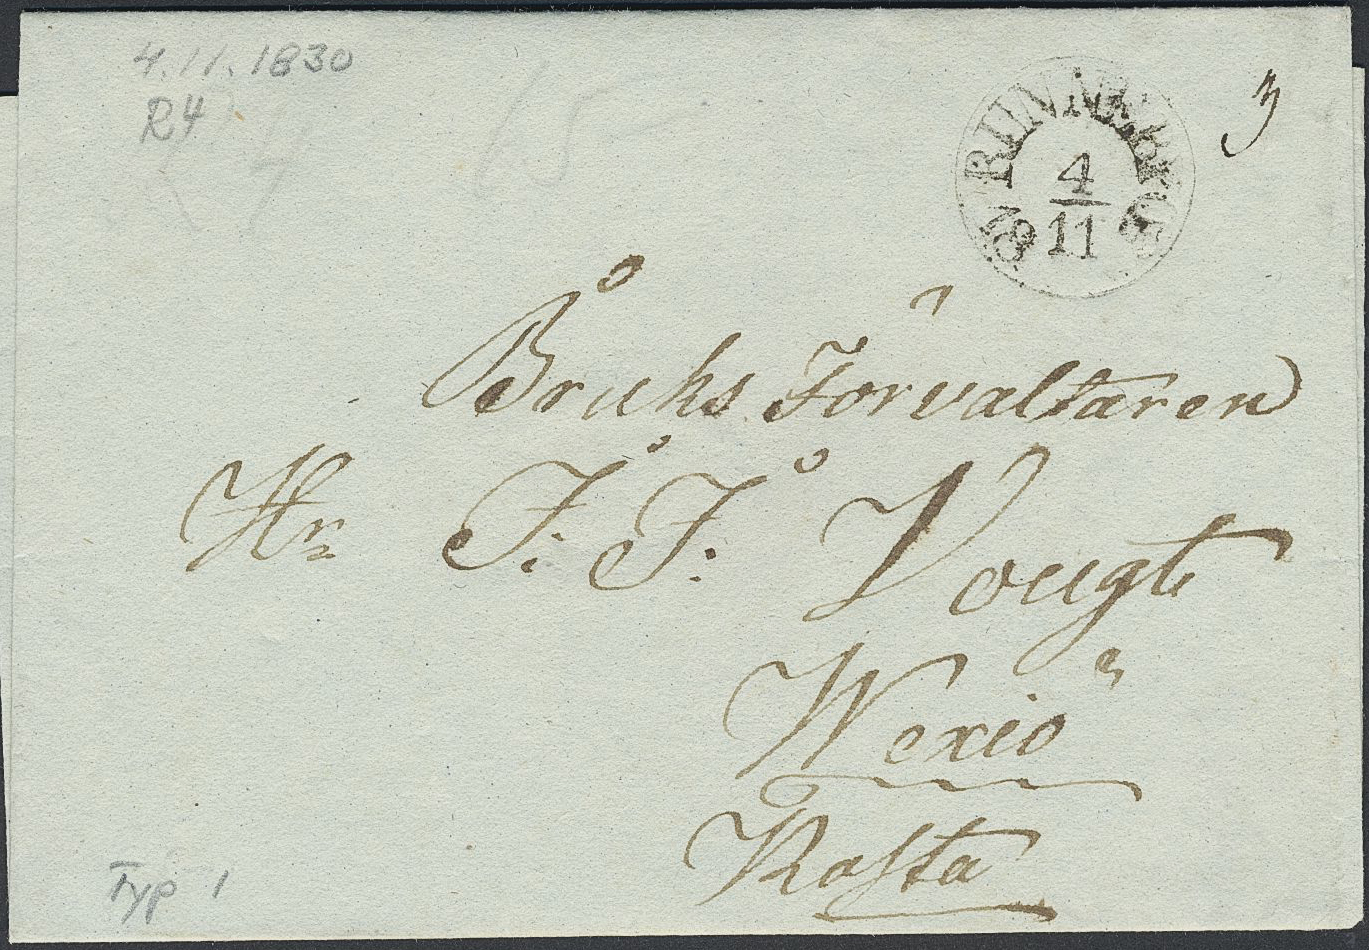 4.11.1830
R4
RUNNEBY
4
11
18
3
Bruks Förvaltaren
Hr J: J: Vougt
Wexiö
Kosta
Typ 1